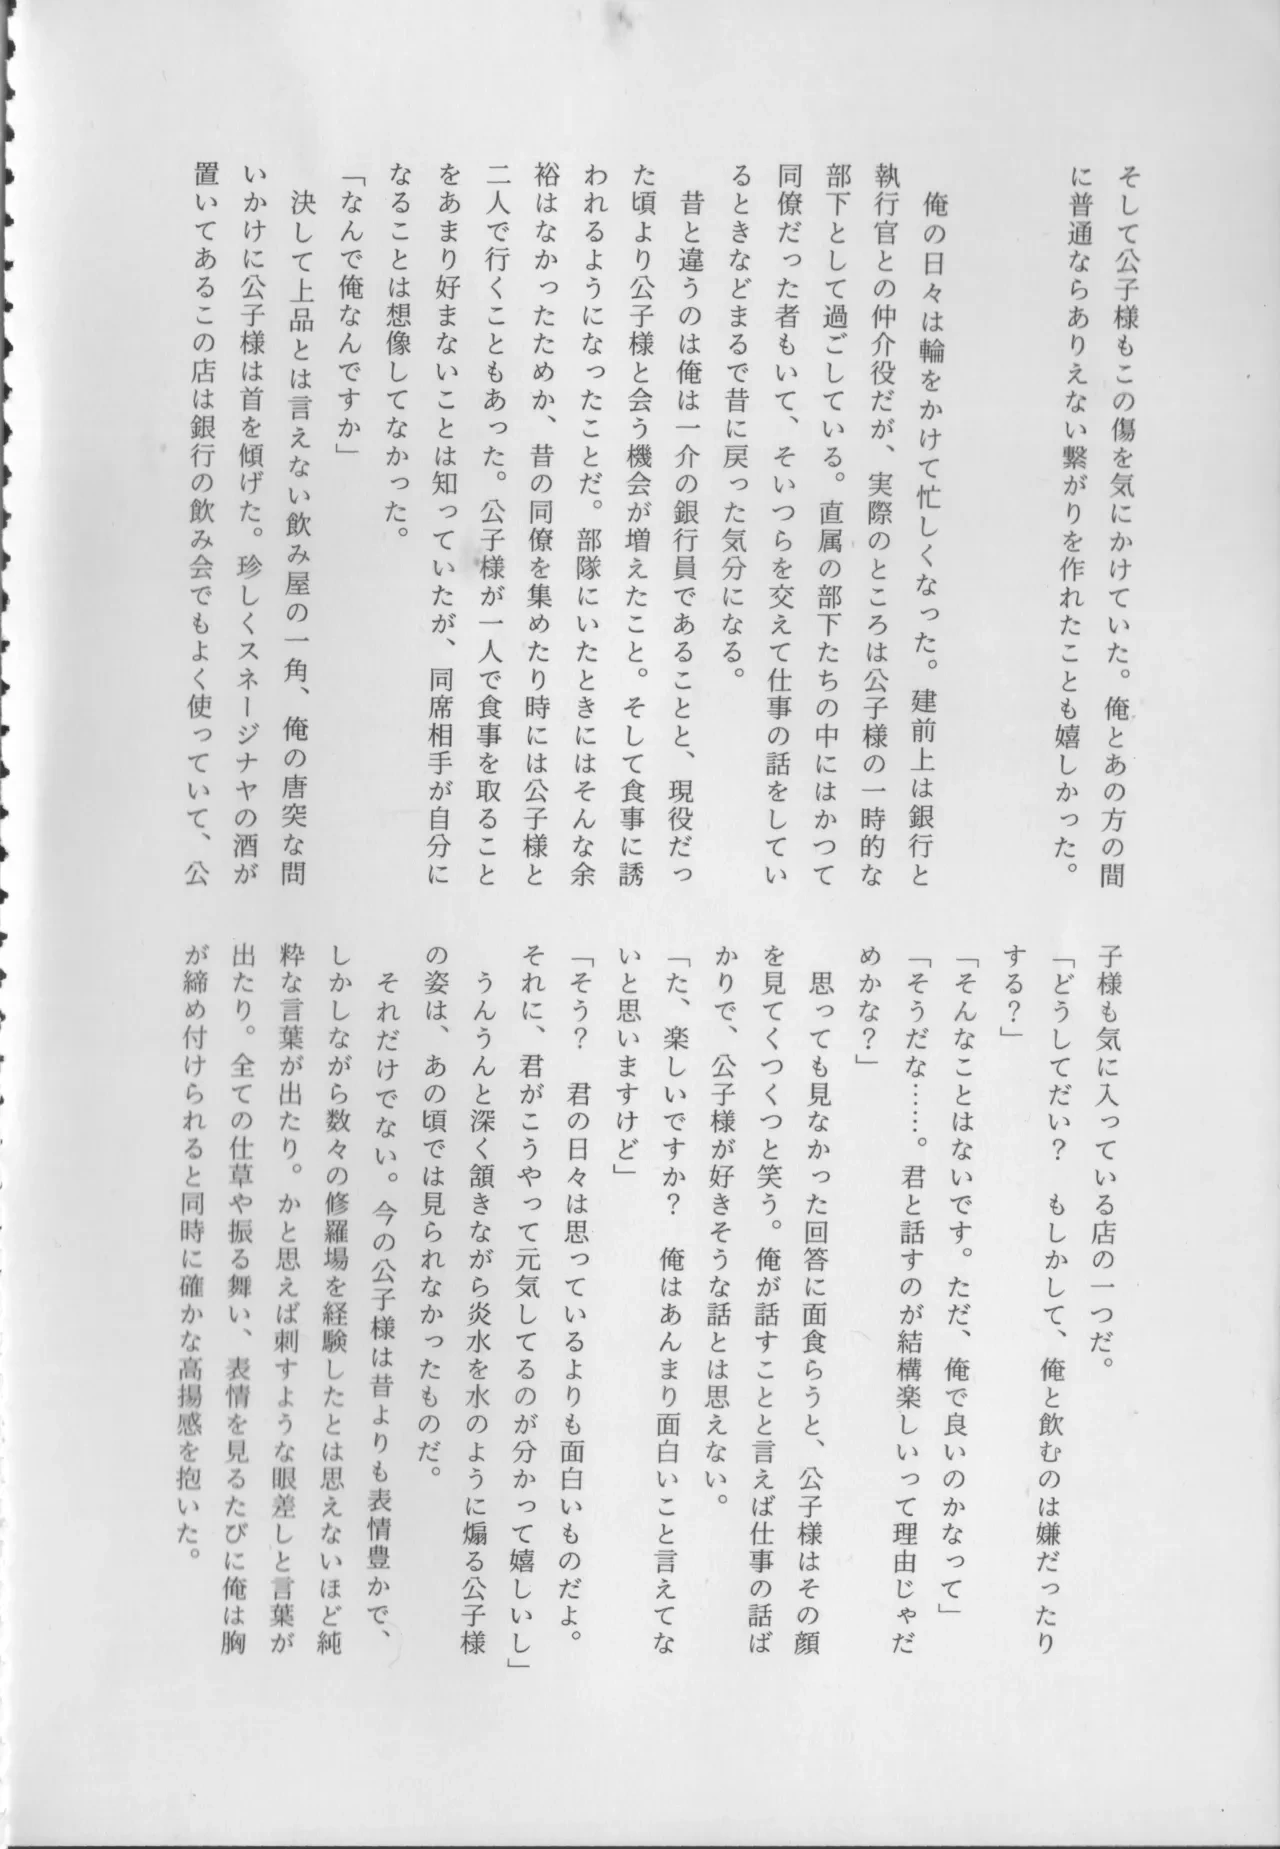 そして公子様もこの傷を気にかけていた。俺とあの方の間
に普通ならありえない繋がりを作れたことも嬉しかった。
俺の日々は輪をかけて忙しくなった。建前上は銀行と
執行官との仲介役だが、実際のところは公子様の一時的な
部下として過ごしている。直属の部下たちの中にはかつて
同僚だった者もいて、そいつらを交えて仕事の話をしてい
るときなどまるで昔に戻った気分になる。
昔と違うのは俺は一介の銀行員であることと、現役だっ
た頃より公子様と会う機会が増えたこと。そして食事に誘
われるようになったことだ。部隊にいたときにはそんな余
裕はなかったためか、昔の同僚を集めたり時には公子様と
二人で行くこともあった。公子様が一人で食事を取ること
をあまり好まないことは知っていたが、同席相手が自分に
なることは想像してなかった。
「なんで俺なんですか」
決して上品とは言えない飲み屋の一角、俺の唐突な問
いかけに公子様は首を傾げた。珍しくスネージナヤの酒が
置いてあるこの店は銀行の飲み会でもよく使っていて、公
子様も気に入っている店の一つだ。
「どうしてだい？　もしかして、俺と飲むのは嫌だったり
する？」
「そんなことはないです。ただ、俺で良いのかなって」
「そうだな……。君と話すのが結構楽しいって理由じゃだ
めかな？」
思っても見なかった回答に面食らうと、公子様はその顔
を見てくつくつと笑う。俺が話すことと言えば仕事の話ば
かりで、公子様が好きそうな話とは思えない。
「た、楽しいですか？　俺はあんまり面白いこと言えてな
いと思いますけど」
「そう？　君の日々は思っているよりも面白いものだよ。
それに、君がこうやって元気してるのが分かって嬉しいし」
うんうんと深く頷きながら炎水を水のように煽る公子様
の姿は、あの頃では見られなかったものだ。
それだけでない。今の公子様は昔よりも表情豊かで、
しかしながら数々の修羅場を経験したとは思えないほど純
粋な言葉が出たり。かと思えば刺すような眼差しと言葉が
出たり。全ての仕草や振る舞い、表情を見るたびに俺は胸
が締め付けられると同時に確かな高揚感を抱いた。